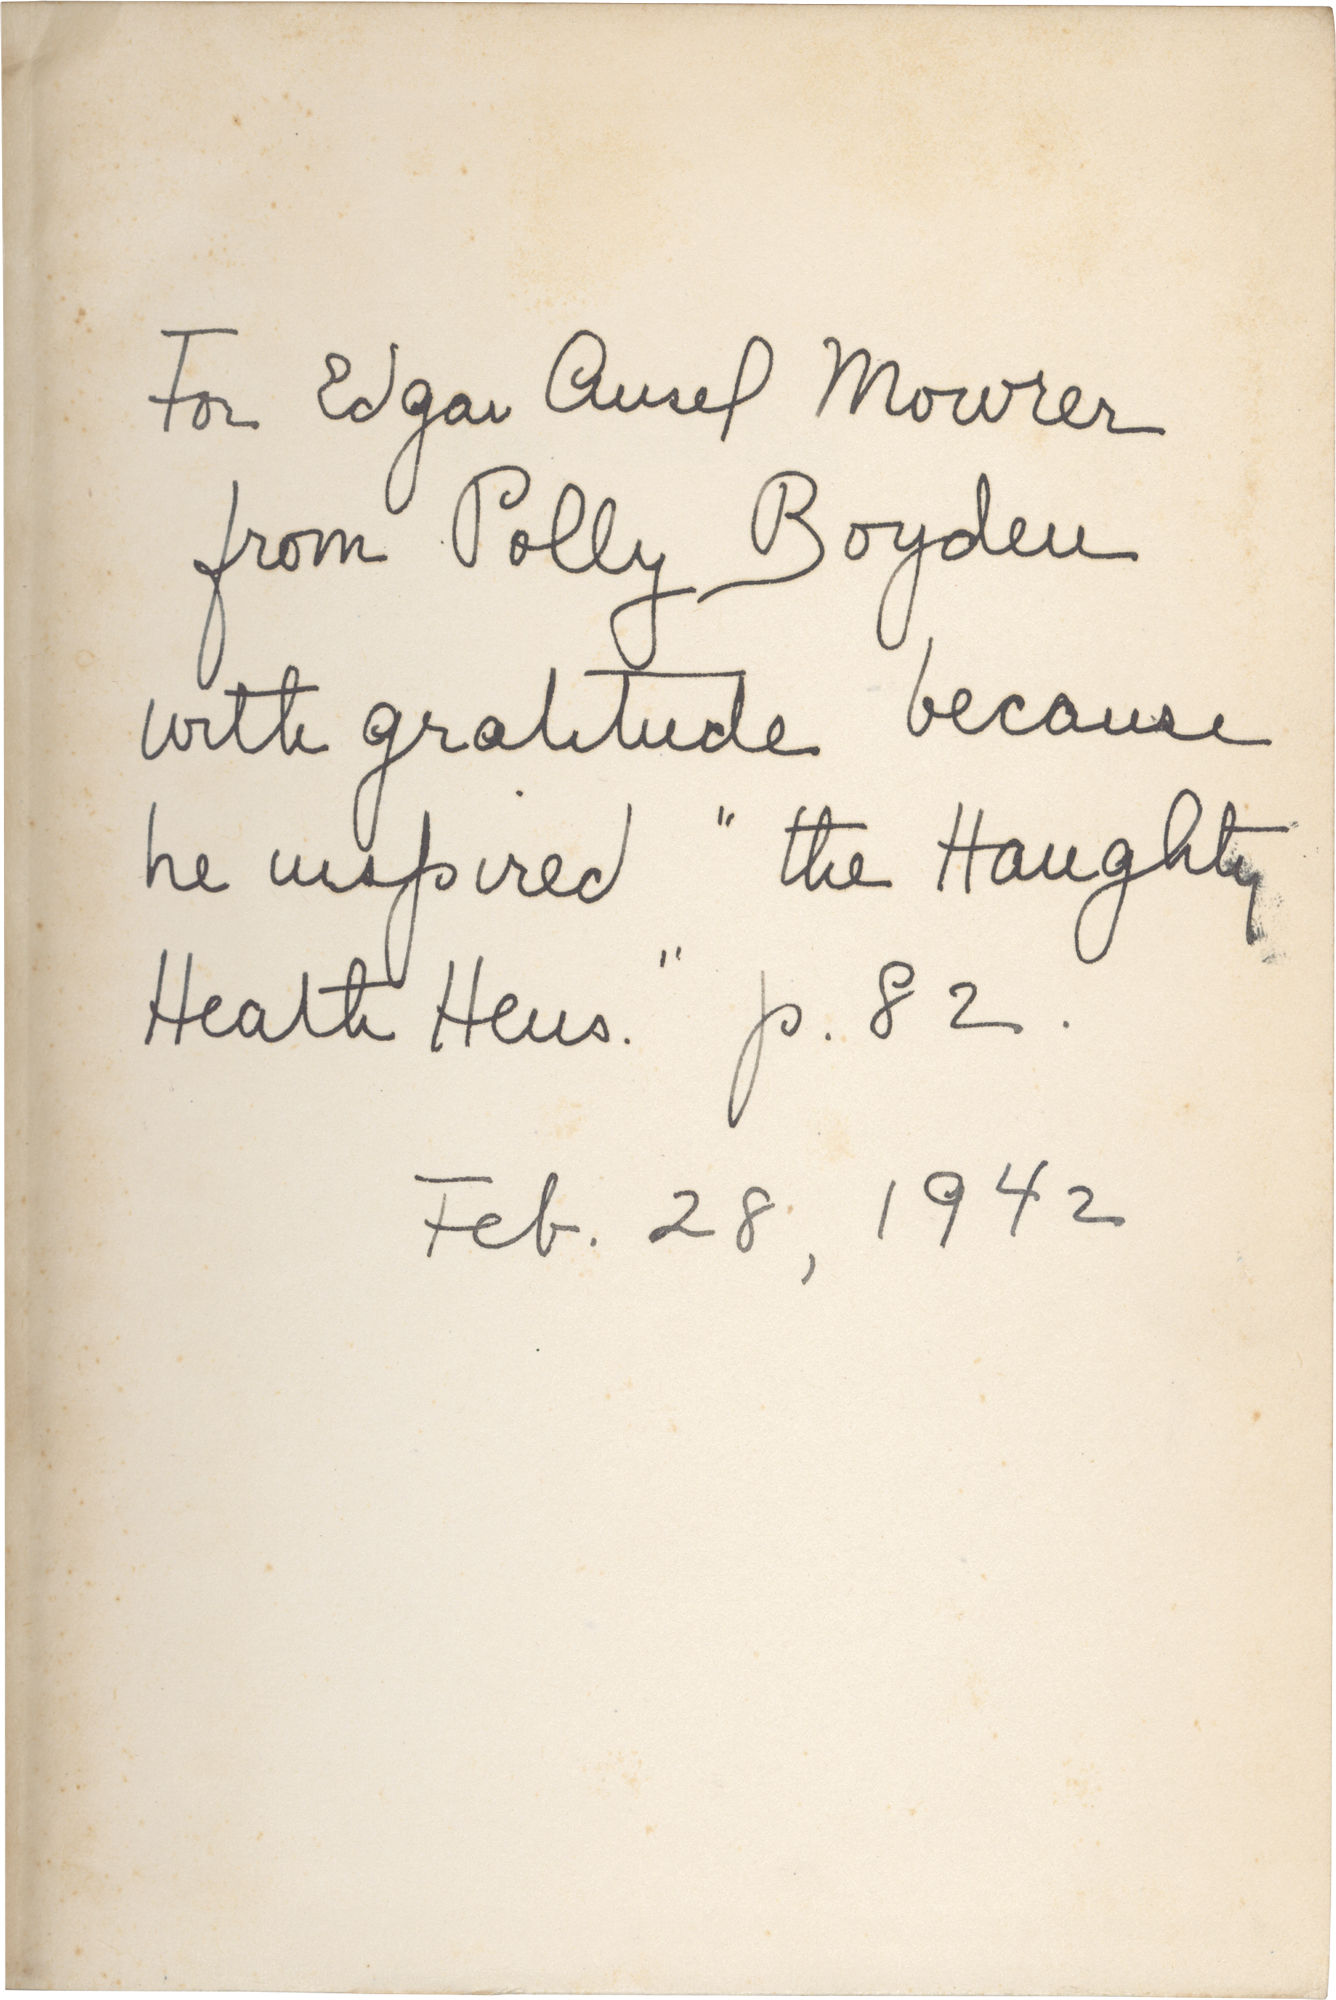 For Edgar Ansel Mowrer
from Polly Boyden
with gratitude because
he inspired "the Haughty
Heath Hens." p. 82.
Feb. 28, 1942